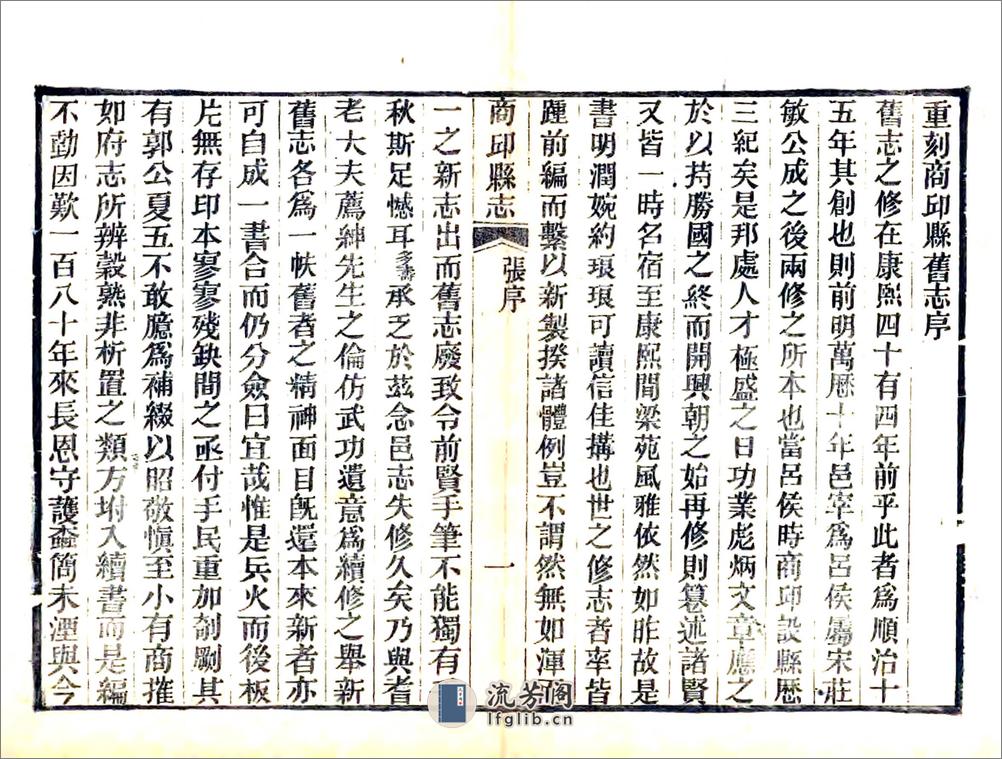 重刻商邱縣舊志序
舊志之修在康熙四十有四年前乎此者爲順治十
五年其創也則前明萬厯十年邑宰爲呂侯屬宋莊
敏公成之後兩修之所本也當呂侯時商邱設縣厯
三紀矣是邦處人才極盛之日功業彪炳文章應之
於以持勝國之終而開興朝之始再修則簒述諸賢
又皆一時名宿至康熙間梁苑風雅依然如昨故是
書明潤婉約琅琅可讀信佳搆也世之修志者率皆
踵前編而繫以新製揆諸體例豈不謂然無如渾而
商邱縣志
張序
一
一之新志出而舊志廢致令前賢手筆不能獨有千
秋斯足憾耳多壽承乏於茲念邑志失修久矣乃與耆
老大夫薦紳先生之倫仿武功遺意爲續修之舉新
舊志各爲一帙舊者之精神面目旣還本來新者亦
可自成一書合而仍分僉曰宜哉惟是兵火而後板
片無存印本寥寥殘缺間之亟付手民重加剞劂其
有郭公夏五不敢臆爲補綴以昭敬愼至小有商搉
如府志所辨穀熟非析置之類方坿入續書而是編
不勦因歎一百八十年來長恩守護蠹簡未湮與今
流芳阁
lfglib.cn